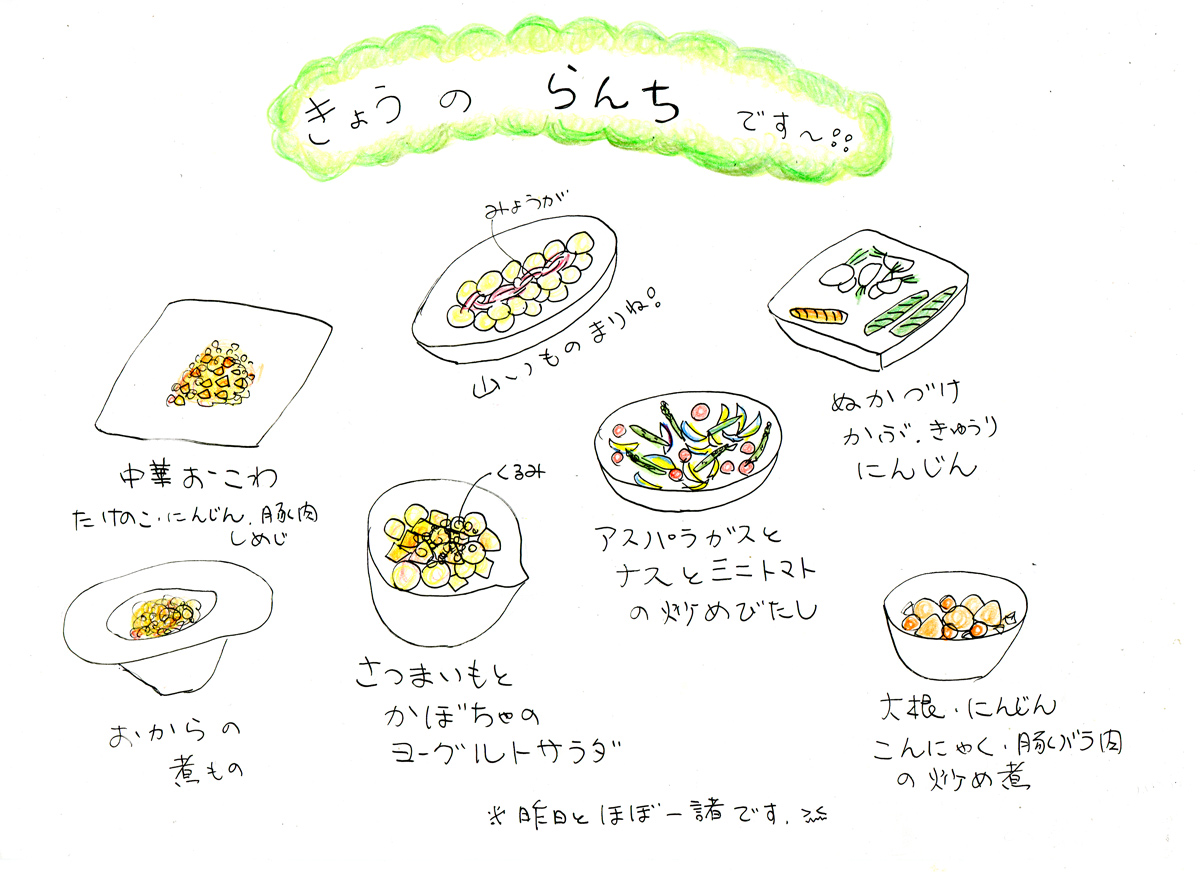 きょうの らんち です〜
みょうが
山いものまりね!
ぬかづけ
かぶ.きゅうり
にんじん
中華おこわ
たけのこ・にんじん.豚肉
しめじ
くるみ
アスパラガスと
ナスとミニトマト
の炒めびたし
おからの
煮もの
さつまいもと
かぼちゃの
ヨーグルトサラダ
大根・にんじん
こんにゃく・豚バラ肉
の炒め煮
※昨日とほぼ一諸です.